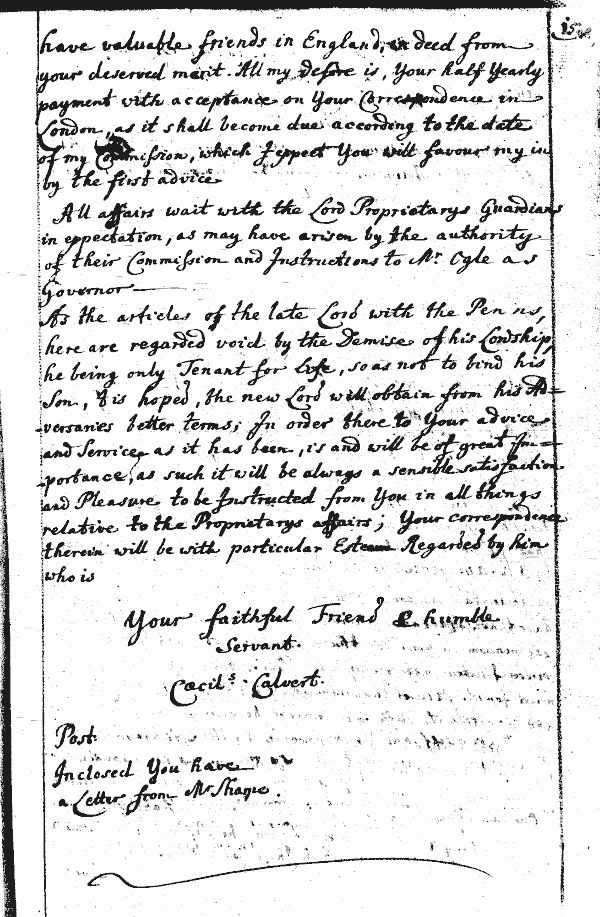 have valuable friends in England, indeed from
your deserved merit. All my desire is, Your half Yearly
payment with acceptance on Your Correspondence in
London, as it shall become due according to the date
of my Commission, which I expect You will favour my in
by the first advice
All affairs wait with the Lord Proprietarys Guardians
in expectation, as may have arisen by the authority
of their Commission and Instructions to Mr. Ogle as
Governor
As the articles of the late Lord with the Penns,
here are regarded void by the Demise of his Lordship,
he being only Tenant for Life, so as not to bind his
Son, tis hoped, the new Lord will obtain from his Ad=
versaries better terms; In order there to Your advice
and Service, as it has been, is and will be of great Im=
portance, as such it will be always a sensible satisfaction
and Pleasure to be Instructed from You in all things
relative to the Proprietarys affairs; Your correspondence
therein will be with particular Esteem Regarded by him
who is
Your faithful Friend & humble
Servant.
Cæcils. Calvert.
Post.
Inclosed You have
a Letter from Mr Sharpe.